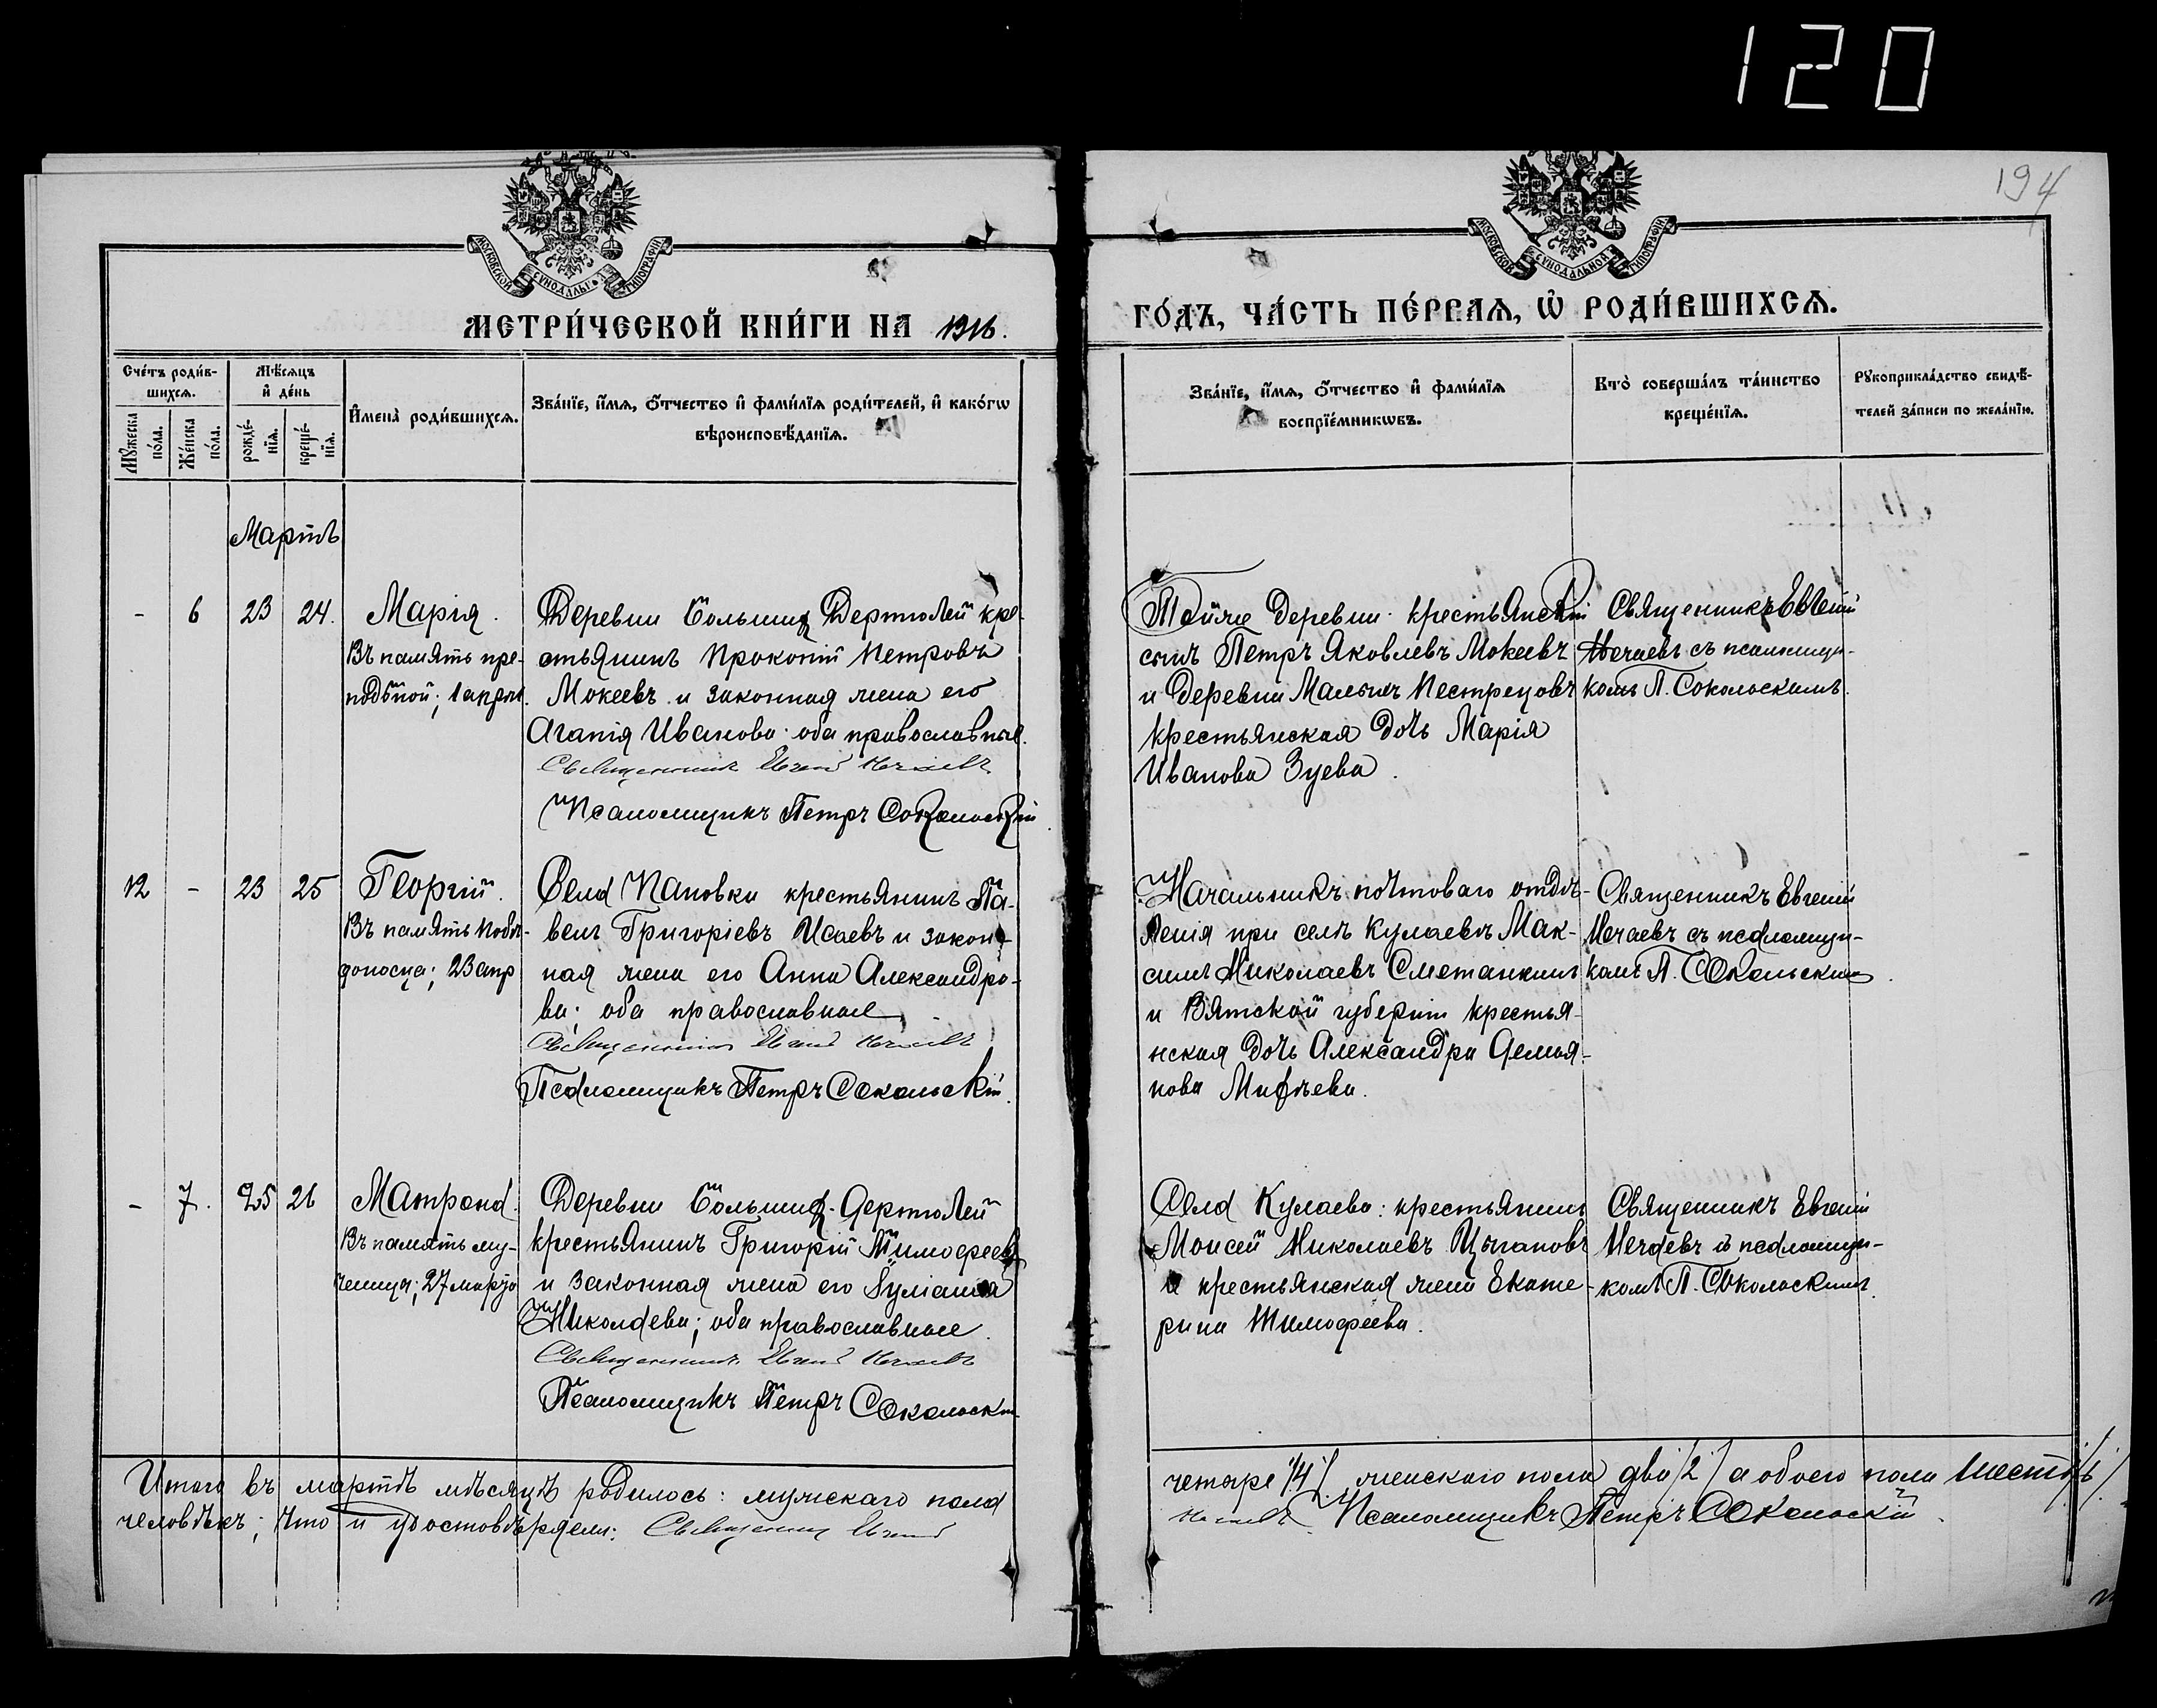 120
194
МОСКОВСКОЙ СУНОДАЛЬНОЙ ТИПОГРАФІИ
МОСКОВСКОЙ СУНОДАЛЬНОЙ ТИПОГРАФІИ
МЕТРИ́ЧЕСКОЙ КНИ́ГИ НА 1916.
ГО́ДЪ, ЧА́СТЬ ПЕ́РВАЯ, Ѡ РОДИ́ВШИХСЯ.
Сче́тъ роди́в-
шихся.
Му́жеска по́ла.
Же́нска по́ла.
Мѣ́сяцъ
и де́нь
рожде́-
нїя.
креще́-
нїя.
Имена̀ роди́вшихся.
Зва́нїе, и́мя, о́тчество и фами́лїя роди́телей, и како́гѡ
вѣроисповѣ́данїя.
Зва́нїе, и́мя, о́тчество и фами́лїя
воспрїе́мникѡвъ.
Кто̀ соверша́лъ та́инство
креще́нїя.
Рукоприкла́дство свидѣ́-
телей за́писи по жела́нїю.
Мартъ
- 6 23 24.
Марія.
Въ память пре-
подбной; 1 апрѣл.
Деревни Большихъ Дертюлей кре-
стьянинъ Прокопій Петровъ
Мокеевъ и законная жена его
Агапія Иванова: оба православные.
Священникъ Евгеній Нечаевъ
Псаломщикъ Петръ Сокольскій
Тойже деревни крестьянскій
сынъ Петръ Яковлевъ Мокеевъ
и деревни Малыхъ Пестрецовъ
крестьянская дочь Марія
Иванова Зуева.
Священникъ Евгеній
Нечаевъ съ псаломщи-
комъ П. Сокольскимъ.
12 - 23 25
Георгій.
Въ память побѣ-
доносца; 23 апр
Села Пановки крестьянинъ Па-
велъ Григоріевъ Исаевъ и закон-
ная жена его Анна Александро-
ва; оба православные
Священникъ Евгеній Нечаевъ
Псаломщикъ Петръ Сокольскій.
Начальникъ почтоваго отдѣ-
ленія при селѣ Кулаевѣ Мак-
симъ Николаевъ Сметанкинъ
и Вятской губерніи крестья-
нская дочь Александра Демья-
нова Мифѣева.
Священникъ Евгеній
Нечаевъ съ псаломщи-
комъ П. Сокольскимъ.
- 7. 25 26
Матрона.
Въ память му-
ченица; 27 марта
Деревни Большихъ Дертюлей
крестьянинъ Григорій Тимофеевъ
и законная жена его Іуліанія
Николаева; оба православные.
Священникъ Евгеній Нечаевъ
Псаломщикъ Петръ Сокольскій
Села Кулаева: крестьянинъ
Моисей Николаевъ Цыгановъ
и крестьянская жена Екате-
рина Тимофеева.
Священникъ Евгеній
Нечаевъ съ псаломщи-
комъ П. Сокольскимъ.
Итого въ мартѣ мѣсяцѣ родилось: мужскаго пола
четыре /4/ женскаго пола два /2/ а обоего пола шесть /6/
человѣкъ; что и удостовѣряемъ: Священникъ Евгеній
Нечаевъ. Псаломщикъ Петръ Сокольскій.